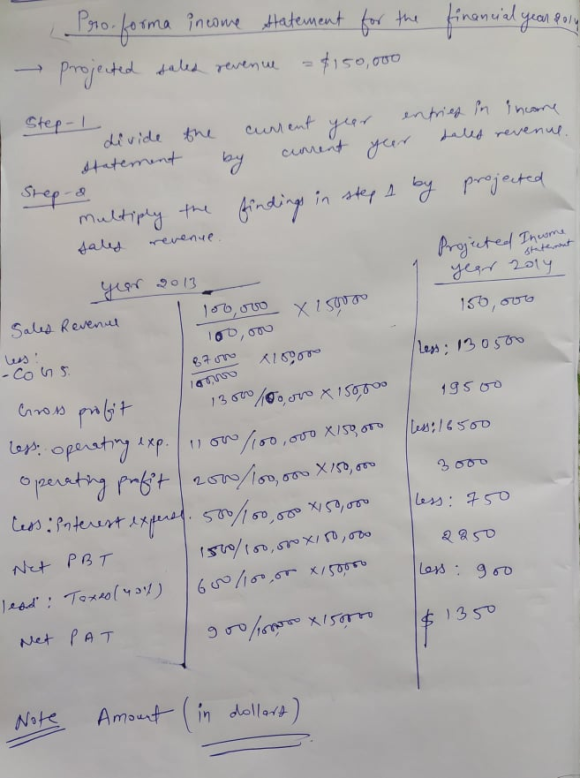 Pro.forma income statement for the financial year 2014
→ Projected sales revenue = $150,000
Step-1
divide the current year entries in income
statement by current year sales revenue.
Step-2
Multiply the findings in step 1 by projected
sales revenue.
Year 2013 Projected Income statement year 2014
Sales Revenue 100,000/100,000 X 150,000 150,000
Less:
-COGS. 87000/100,000 X 150,000 Less: 130500
Gross profit 13000/100,000 X 150,000 19500
Less: operating exp. 11000/100,000 X 150,000 Less: 16500
Operating profit 2000/100,000 X 150,000 3000
Less: Interest expense. 500/100,000 X 150,000 Less: 750
Net PBT 1500/100,000 X 150,000 2250
Less: Taxes (40%) 600/100,000 X 150,000 Less: 900
Net PAT 900/100,000 X 150,000 $ 1350
Note Amount (in dollars)